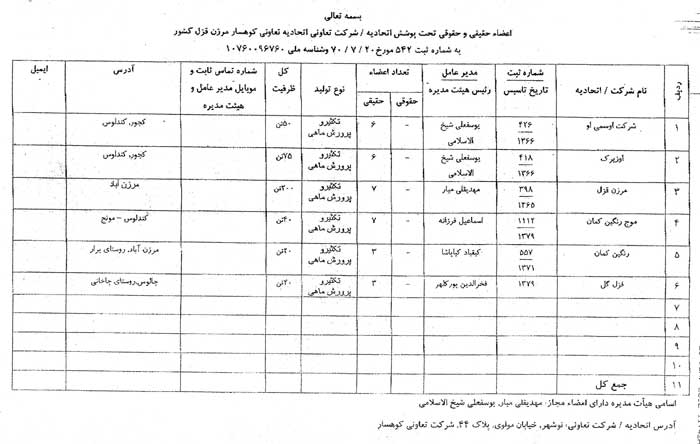 بسمه تعالی
اعضاء حقیقی و حقوقی تحت پوشش اتحادیه / شرکت تعاونی اتحادیه تعاونی کوهسار مرزن قزل کشور
به شماره ثبت ۵۴۲ مورخ ۲۰ / ۷ / ۷۰ وشناسه ملی ۱۰۷۶۰۰۹۶۷۶۰
ردیف | نام شرکت / اتحادیه | شماره ثبت تاریخ تاسیس | مدیر عامل رئیس هیئت مدیره | تعداد اعضاء حقوقی حقیقی | نوع تولید | کل ظرفیت | شماره تماس ثابت و موبایل مدیر عامل و هیئت مدیره | آدرس | ایمیل
۱ | شرکت اوسمی او | ۴۲۶ ۱۳۶۶ | یوسفعلی شیخ الاسلامی | - | ۶ | تکثیرو پرورش ماهی | ۵۰تن | کجور، کندلوس
۲ | اوزیرک | ۴۱۸ ۱۳۶۶ | یوسفعلی شیخ الاسلامی | - | ۶ | تکثیرو پرورش ماهی | ۷۵تن | کجور، کندلوس
۳ | مرزن قزل | ۳۹۸ ۱۳۶۵ | مهدیقلی میار | - | ۷ | تکثیرو پرورش ماهی | ۲۰۰تن | مرزن آباد
۴ | موج رنگین کمان | ۱۱۱۲ ۱۳۷۹ | اسماعیل فرزانه | - | ۷ | تکثیرو پرورش ماهی | ۴۰تن | کندلوس – مونج
۵ | رنگین کمان | ۵۵۷ ۱۳۷۱ | کیقباد کیاپاشا | - | ۳ | تکثیرو پرورش ماهی | ۲۰تن | مرزن آباد، روستای برار
۶ | قزل گل | ۱۳۷۹ | فخرالدین پورکلهر | - | ۳ | تکثیرو پرورش ماهی | ۲۰تن | چالوس،روستای چاخانی
۷
۸
۹
۱۰
۱۱ | جمع کل
اسامی هیأت مدیره دارای اعضاء مجاز: مهدیقلی میار، یوسفعلی شیخ الاسلامی
آدرس اتحادیه / شرکت تعاونی: نوشهر، خیابان مولوی، پلاک ۴۴، شرکت تعاونی کوهسار